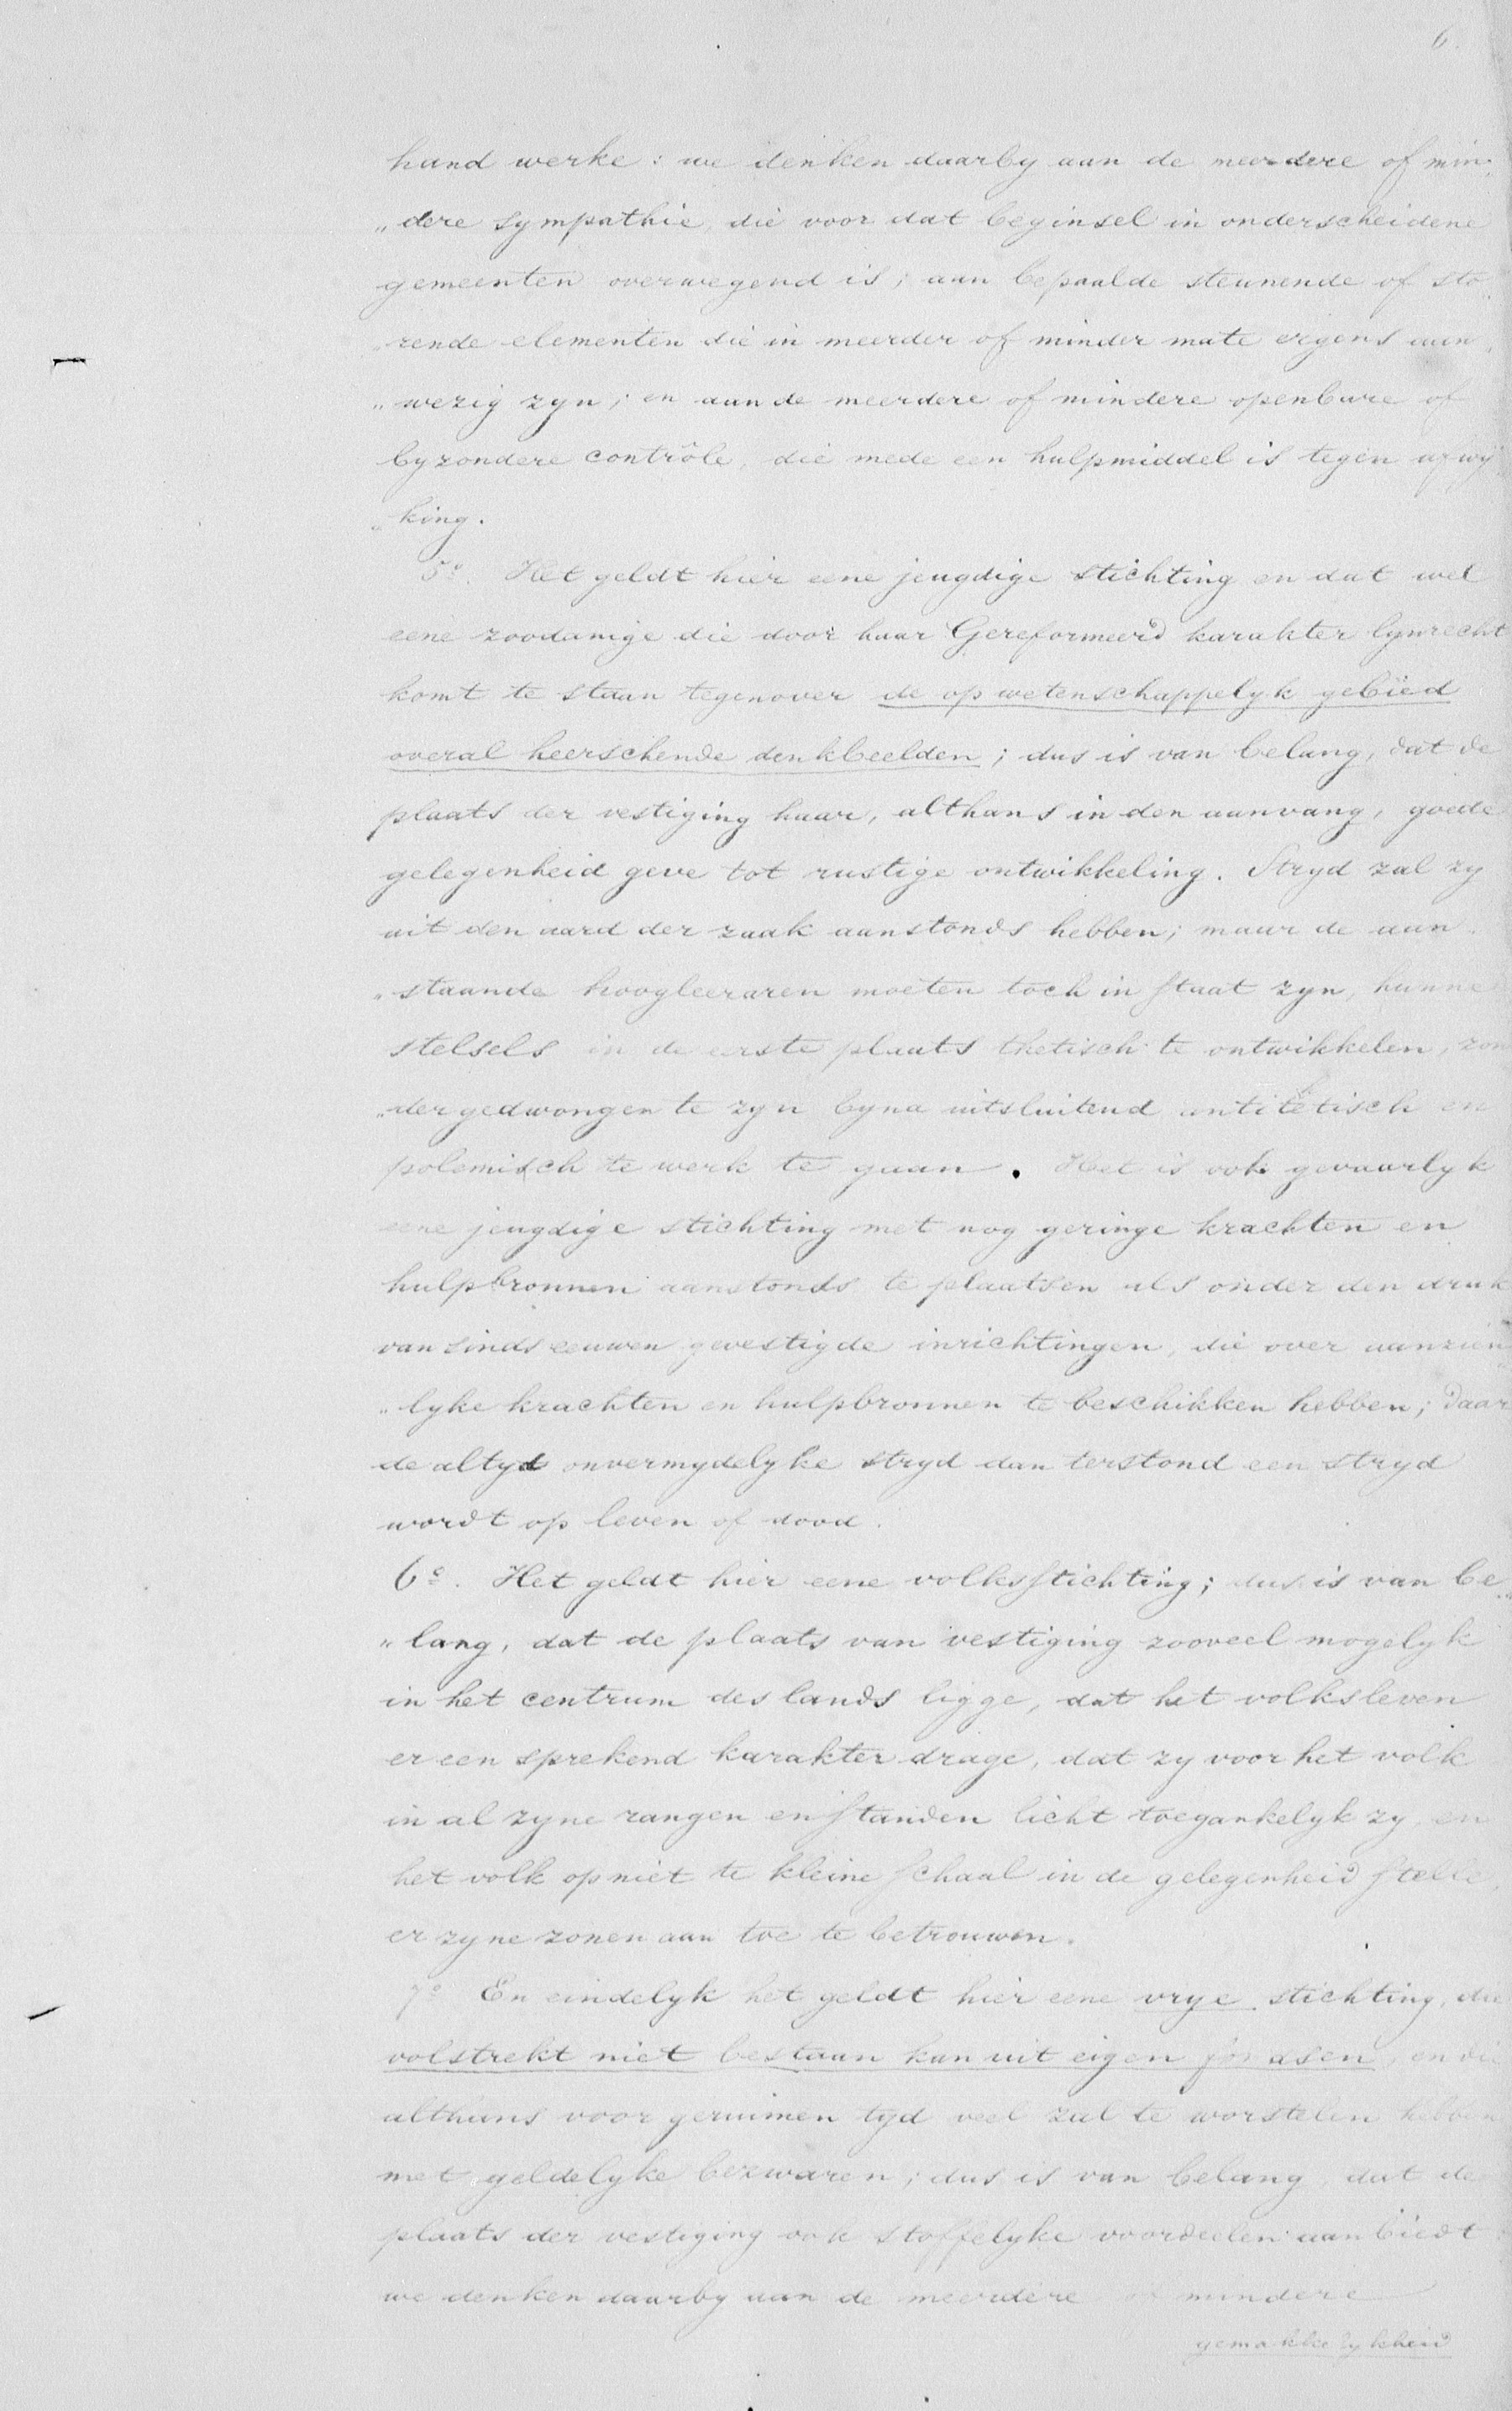 6.
hand werke: we denken daarby aan de meerdere of min„
„dere sympathie, die voor dat beginsel in onderscheidene
gemeenten overwegend is; aan bepaalde steunende of sto„
„rende elementen die in meerder of minder mate ergens aan„
„wezig zyn; en aan de meerdere of mindere openbare of
byzondere contrôle, die mede een hulpmiddel is tegen afwy„
„king.
5º. Het geldt hier eene jeugdige stichting en dat wel
eene zoodanige die door haar Gereformeerd karakter lynrecht
komt te staan tegenover de op wetenschappelyk gebied
overal heerschende denkbeelden; dus is van belang, dat de
plaats der vestiging haar, althans in den aanvang, goede
gelegenheid geve tot rustige ontwikkeling. Stryd zal zy
uit den aard der zaak aanstonds hebben; maar de aan„
„staande hoogleeraren moeten toch in staat zyn, hunne
stelsels in de eerste plaats thetisch te ontwikkelen, zon
„der gedwongen te zyn byna uitsluitend antithetisch en
polemisch te werk te gaan. Het is ook gevaarlyk
eene jeugdige stichting met nog geringe krachten en
hulpbronnen aanstonds te plaatsen als onder den druk
van sinds eeuwen gevestigde inrichtingen, die over aanzien
„lyke krachten en hulpbronnen te beschikken hebben; daar
de altyd onvermydelyke stryd dan terstond een stryd
wordt op leven of dood.
6º. Het geldt hier eene volksstichting; dus is van be„
„lang, dat de plaats van vestiging zooveel mogelyk
in het centrum des lands ligge, dat het volksleven
er een sprekend karakter drage, dat zy voor het volk
in al zyne rangen en standen licht toegankelyk zy, en
het volk op niet te kleine schaal in de gelegenheid stelle,
er zyne zonen aan toe te betrouwen.
7º En eindelyk het geldt hier eene vrye stichting, die
volstrekt niet bestaan kan uit eigen fondsen, en die
althans voor geruimen tyd veel zal te worstelen hebben
met geldelyke bezwaren; dus is van belang, dat de
plaats der vestiging ook stoffelyke voordeelen aanbiedt
we denken daarby aan de meerdere of mindere
gemakkelykheid